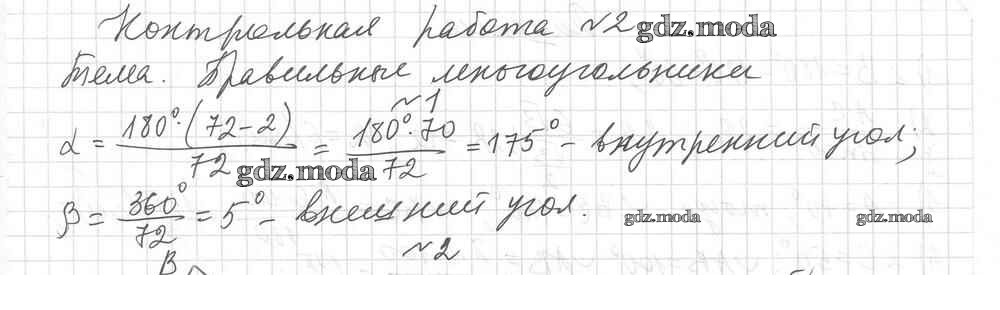 Контрольная работа №2 gdz.moda
Тема. Правильные многоугольники
№1
α = 180°·(72-2)/72 = 180°·70/72 = 175° - внутренний угол;
gdz.moda
β = 360°/72 = 5° - внешний угол.
gdz.moda gdz.moda
№2
B